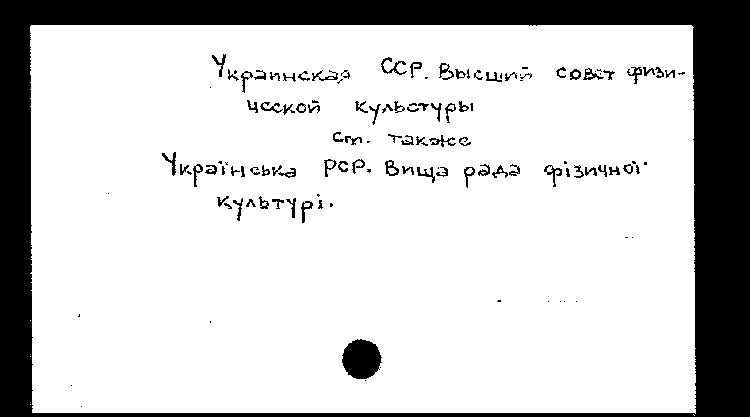 Украинская ССР. Высший совет физи-
ческой культуры
см. также
Українська РСР. Вища рада фізичної
культурі.